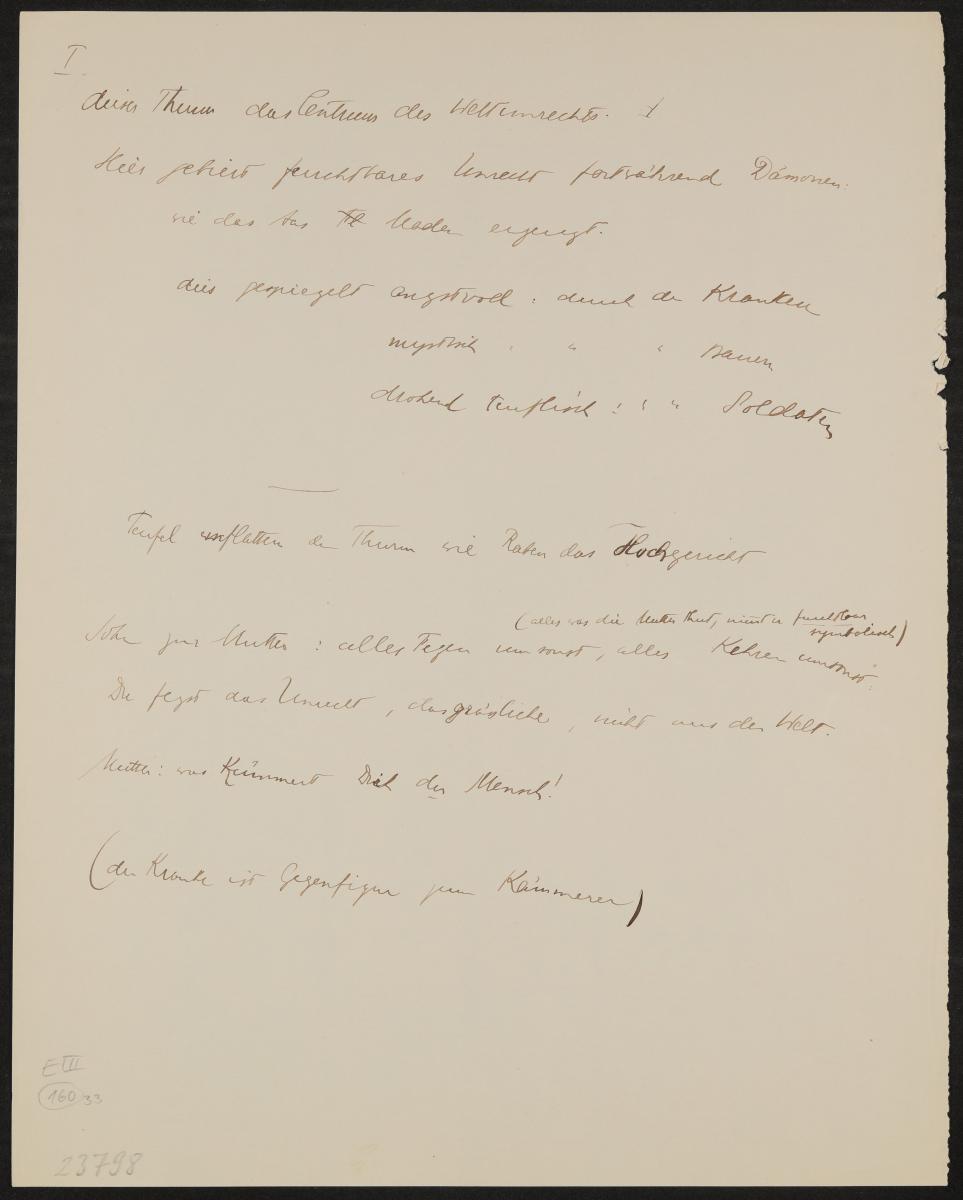 I.
dieser Thurm das Centrum des Weltunrechts. I
Hier gebiert furchtbares Unrecht fortwährend Dämonen:
wie das Aas Maden erzeugt.
dies gespiegelt angstvoll : durch den Kranken
mystisch " " " Bauern
drohend teuflisch : " " Soldaten
Teufel umflattern den Thurm wie Raben das Hochgericht
(alles was die Mutter thut, nimmt er furchtbar
symbolisch)
Sohn zur Mutter : alles Fegen umsonst, alles Kehren umsonst:
Du fegst das Unrecht, das grässliche, nicht aus der Welt.
Mutter: was kümmert Dich der Mensch!
(der Kranke ist Gegenfigur zum Kämmerer)
E III
160 33
23798